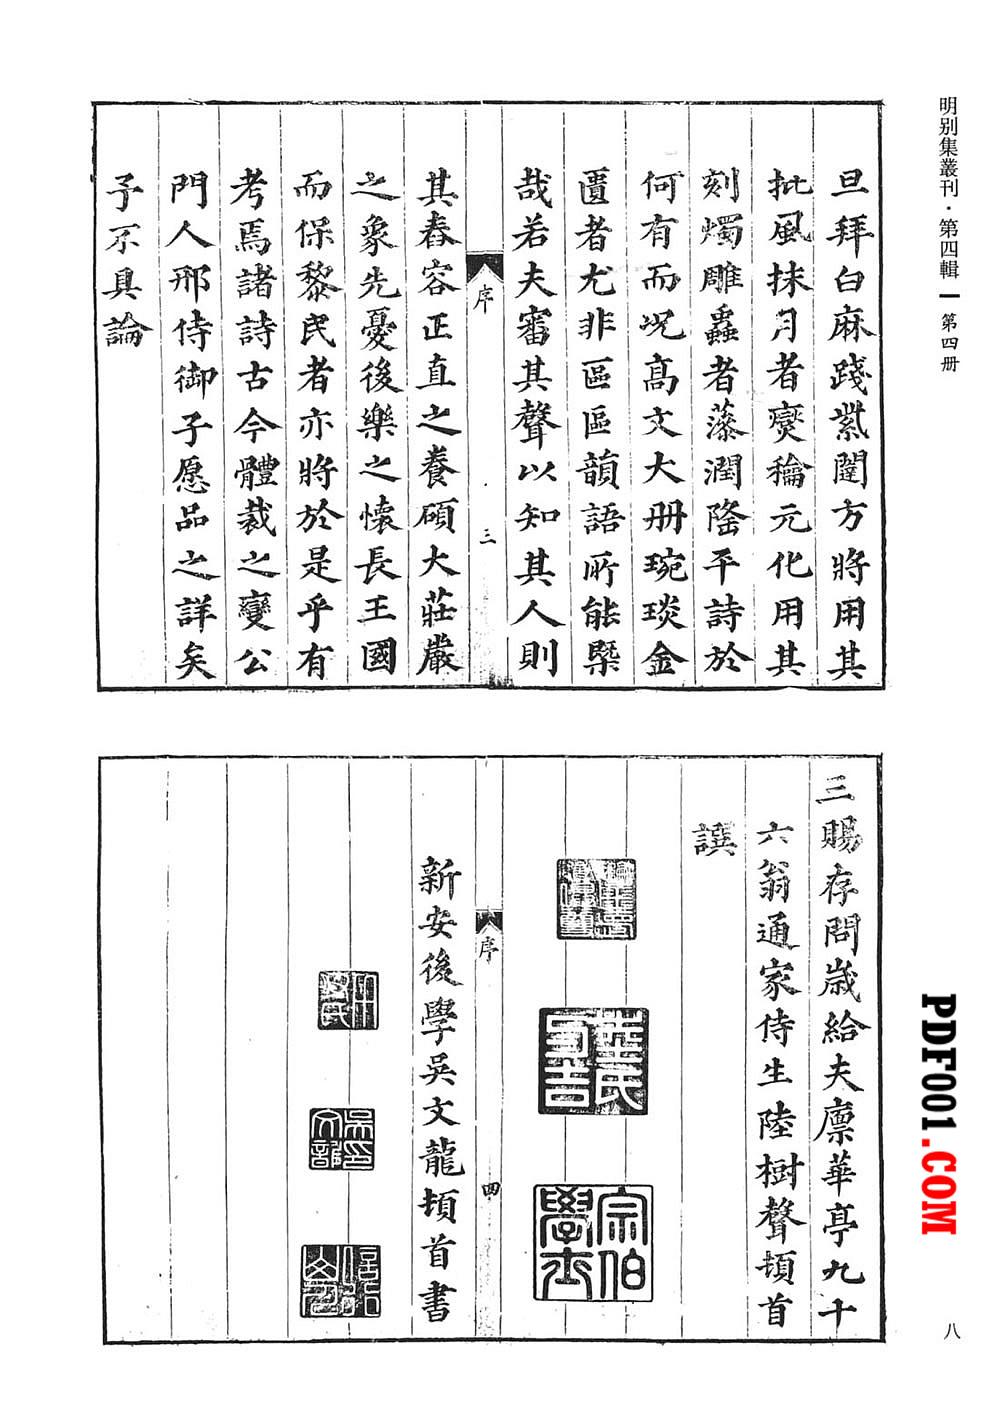 明别集叢刊·第四輯 第四册
旦拜白麻踐紫闥方將用其
批風抹月者爕䊳元化用其
刻燭雕蟲者藻潤隆平詩於
何有而况高文大册琬琰金
匱者尤非區區韻語所能槩
哉若夫審其聲以知其人則
序
三
其舂容正直之養碩大莊嚴
之象先憂後樂之懷長王國
而保黎民者亦將於是乎有
考焉諸詩古今體裁之變公
門人邢侍御子愿品之詳矣
子不具論
三賜存問歲給夫廪華亭九十
六翁通家侍生陸樹聲頓首
譔
宗伯學士
序
四
新安後學吳文龍頓首書
PDF001.COM
八